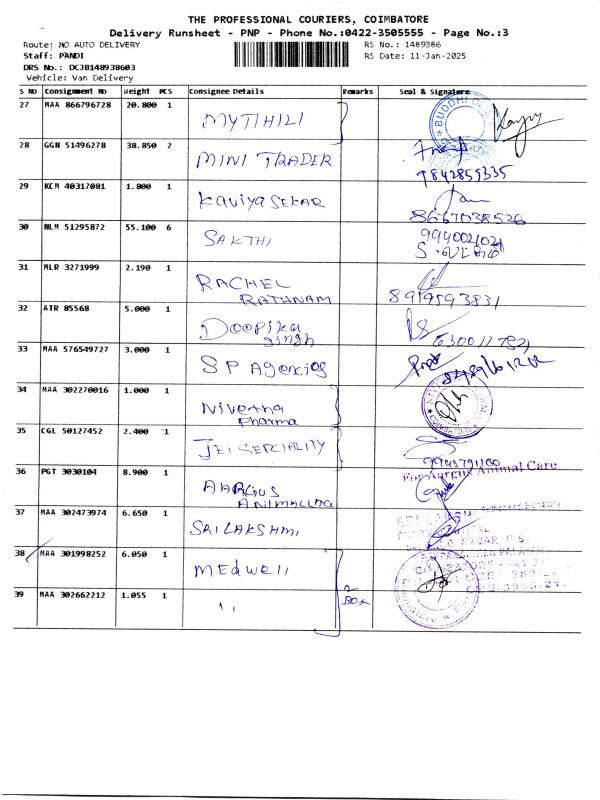 THE PROFESSIONAL COURIERS, COIMBATORE
Delivery Runsheet - PNP - Phone No.:0422-3505555 - Page No.:3
Route: NO AUTO DELIVERY
RS No.: 1489386
Staff: PANDI
RS Date: 11-Jan-2025
DRS No.: DCJB148938603
Vehicle: Van Delivery
S No Consignment No Weight PCS Consignee Details Remarks Seal & Signature
27 MAA 866796728 20.800 1 MYTHILI
BUDDHI
28 GGN 51496278 38.850 2 MINI TRADER
7842859335
29 KCM 40317081 1.800 1 Kaviya SEKAR
8667038526
30 NLM 51295872 55.100 6 SAKTHI
31 MLR 3271999 2.190 1 RACHEL RATHNAM
8919593831
32 ATR 85568 5.000 1 Deepika Singh
33 MAA 576549727 3.000 1 S P Agencies
34 MAA 302270016 1.000 1 Nivetha Pharma
35 CGL 50127452 2.400 1 JEI SEPCIALITY
36 PGT 3030104 8.900 1 AARGUS
For Aargus Animal Care
37 MAA 302473974 6.650 1 SRI LAKSHMI
38 MAA 301998252 6.050 1 Medwell
39 MAA 302662212 1.055 1 ''